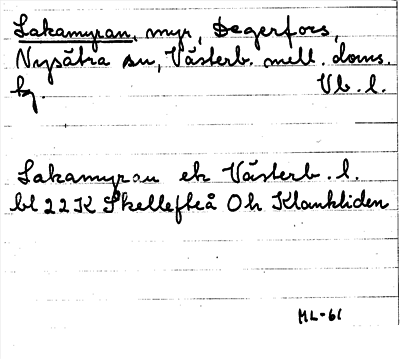 Lakamyran, myr, Degerfors,
Nysätra sn, Västerb. mell. doms.
bg. Vb. l.
Lakamyran ek Västerb. l.
bl 22K Skellefteå Oh Klankliden
ML-61